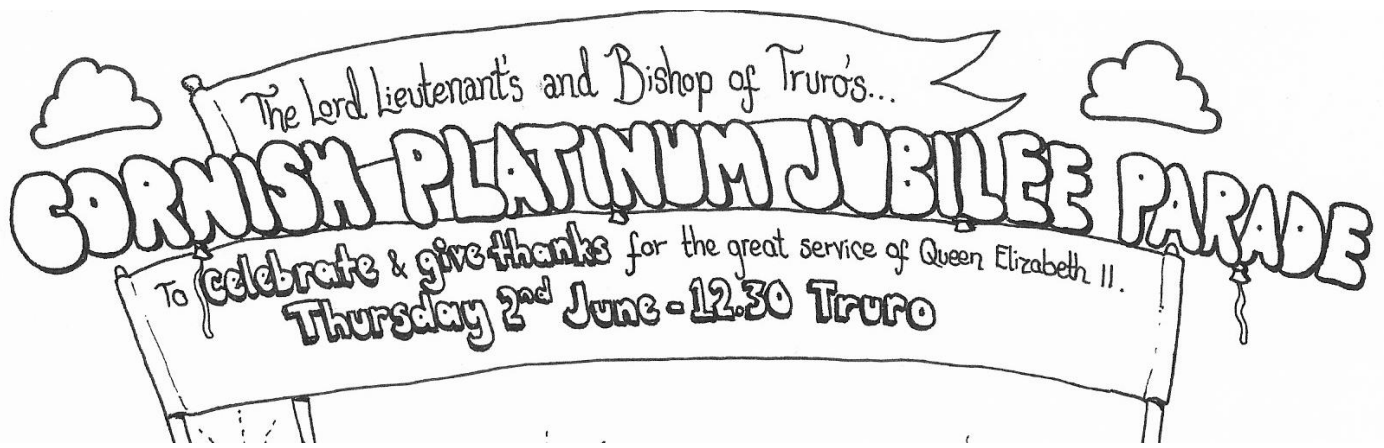 The Lord Lieutenant's and Bishop of Truro's...
CORNISH PLATINUM JUBILEE PARADE
To celebrate & give thanks for the great service of Queen Elizabeth II.
Thursday 2nd June - 12.30 Truro